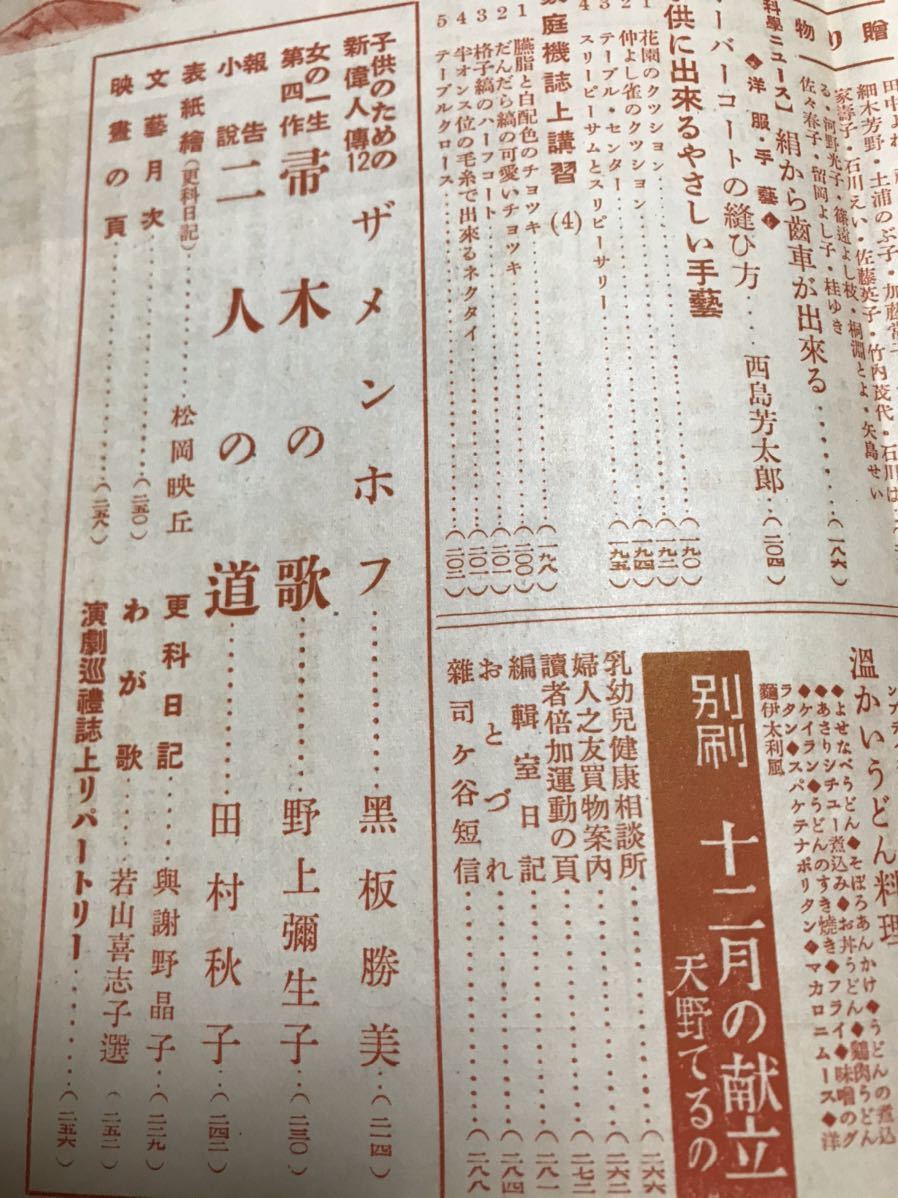 贈
物
り
田中よね
細木芳野・土浦のぶ子・加藤常子・石川は
家壽子・石川えい・佐藤英子・竹内茂代
る・河野光子・篠遠よし枝・桐淵とよ・矢島せい
佐々春子・留岡よし子・桂ゆき
科學ニュース】絹から齒車が出來る……(一八六)
◆洋服・手藝◆
ーバーコートの縫ひ方……西島芳太郎……(二〇四)
供に出來るやさしい手藝……(一九〇)
1 花園のクツション……(一九二)
2 仲よし雀のクツション……(一九四)
3 テーブル・センター……(一九五)
4 スリーピーサムとスリピーサリー
家庭機誌上講習(4)……(一九八)
1 臙脂と白配色のチョツキ……(二〇〇)
2 だんだら縞の可愛いチョツキ……(二〇一)
3 格子縞のハーフコート……(二〇一)
4 半オンス位の毛糸で出來るネクタイ……(二〇二)
5 テーブルクロース
溫かいうどん料理
◆よせなべうどん◆そぼろあんかけ◆うどんの煮込
◆あさりシチュー煮込み◆お丼うどん◆鷄肉うどん
◆ケイラン◆うどんのすき燒き◆フライ◆味噌のグ
ラタン◆スパゲテナポリタン◆マカロニムース◆洋
麵伊太利風
別刷 十二月の献立 天野てるの
乳幼兒健康相談所……(二六六)
婦人之友買物案內……(二六二)
讀者倍加運動の頁……(二七二)
編輯室日記……(二八一)
おとづれ……(二八四)
雜司ケ谷短信……(二八八)
子供のための新偉人傳12 ザメンホフ……黑板勝美……(二一四)
女の一生第四作 帚木の歌……野上彌生子……(二三〇)
報告小說 二人の道……田村秋子……(二四二)
表紙繪(更科日記)……松岡映丘
更科日記……與謝野晶子……(二二九)
文藝月次……(二五〇)
わが歌……若山喜志子選(二五二)
映畫の頁……(二五八)
演劇巡禮誌上リパートリー……(二五六)